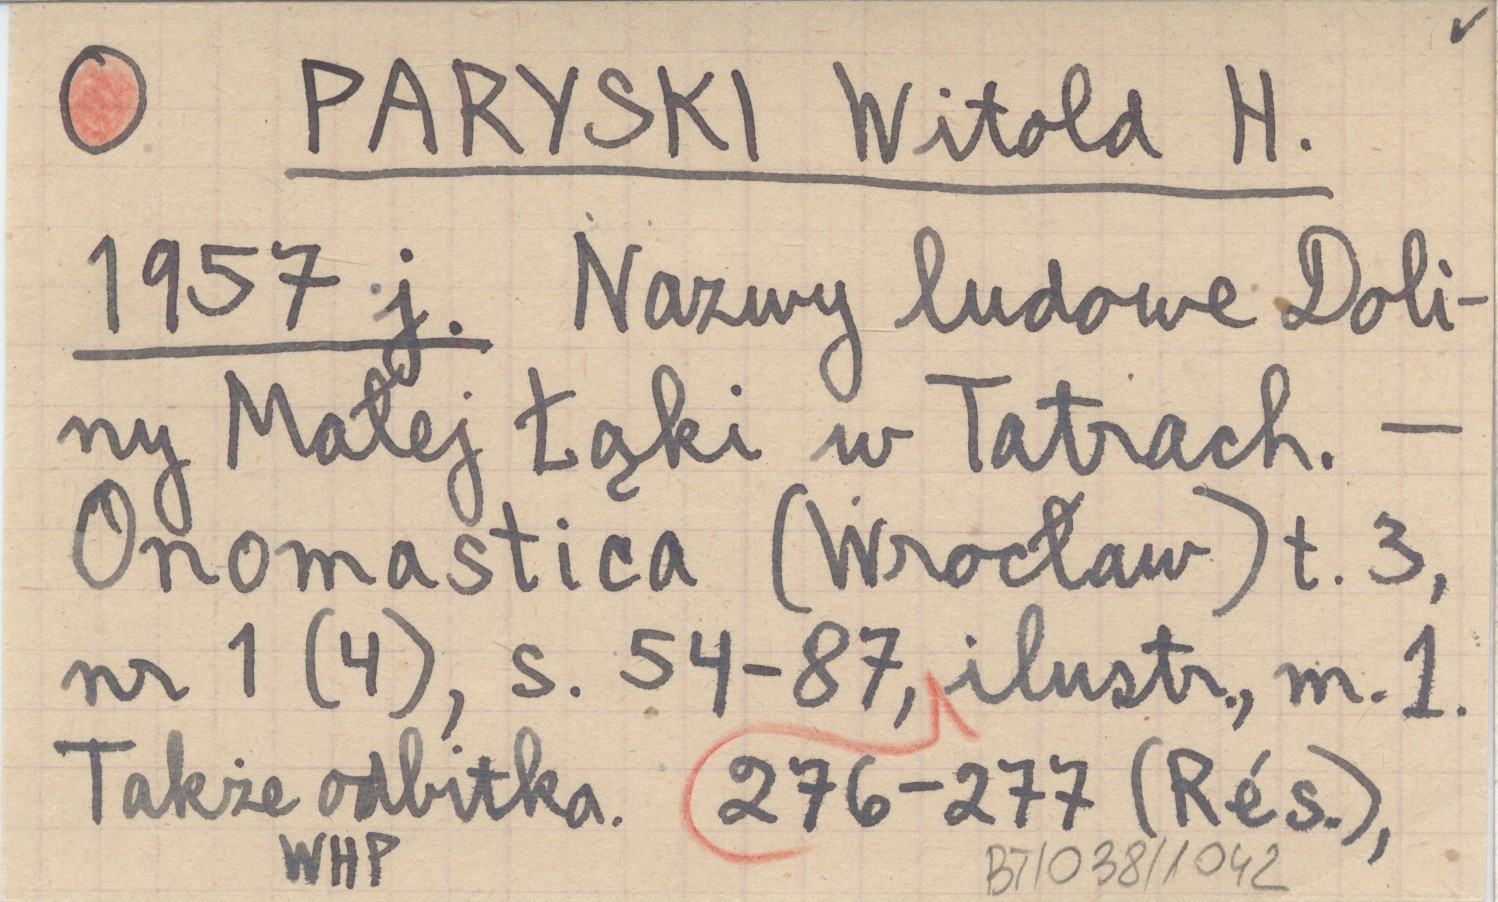 PARYSKI Witold H.
1957 j. Nazwy ludowe Doli-
ny Małej Łąki w Tatrach. —
Onomastica (Wrocław) t. 3,
nr 1 (4), s. 54-87, ilustr., m. 1.
Także odbitka. 276-277 (Rés.),
WHP
BT/038/1042